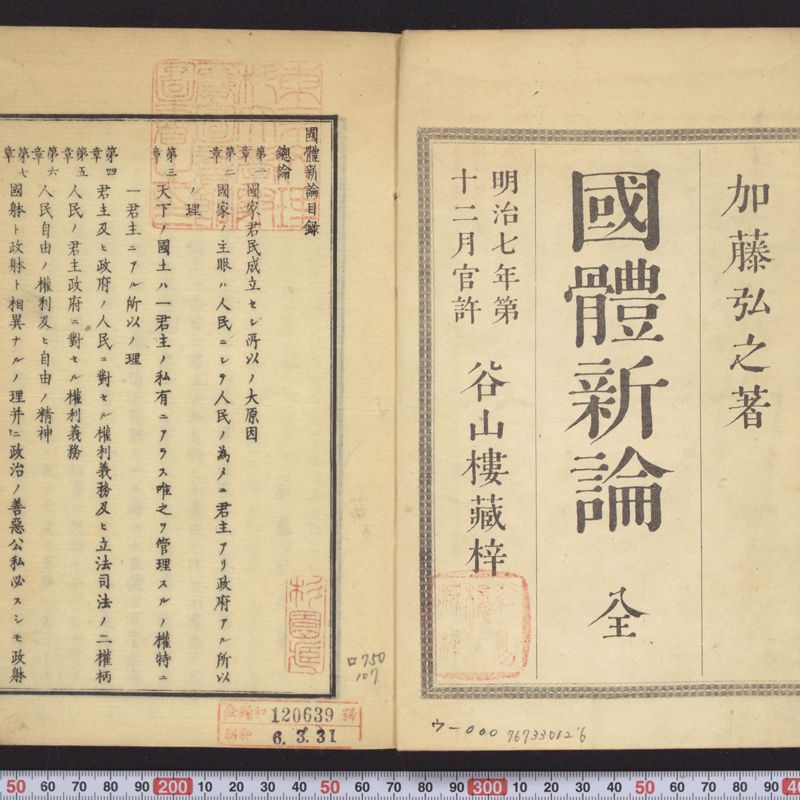 加藤弘之著
國體新論 全
明治七年第
十二月官許
谷山樓藏梓
國體新論目録
總論
第一章 國家君民成立セシ所以ノ大原因
第二章 國家ノ主眼ハ人民ニシテ人民ノ為メニ君主アリ政府アル所以
ノ理
第三章 天下ノ國土ハ一君主ノ私有ニアラス唯之ヲ管理スルノ權特ニ
一君主ニアル所以ノ理
第四章 君主及ヒ政府ノ人民ニ對セル權利義務及ヒ立法司法ノ二權柄
第五章 人民ノ君主政府ニ對セル權利義務
第六章 人民自由ノ權利及ヒ自由ノ精神
第七章 國躰ト政躰ト相異ナルノ理并ニ政治ノ善惡公私必スシモ政躰
120639 號
昭和 6.3.31
ロ750
107
ウ-000
767330126
50 60 70 80 90 200 10 20 30 40 50 60 70 80 90 300 10 20 30 40 50 60 70 80 90